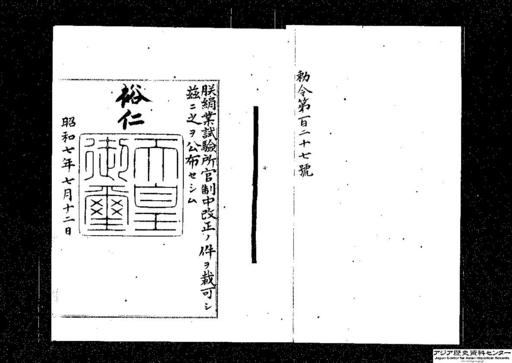 勅令第百二十七號
朕絹業試驗所官制中改正ノ件ヲ裁可シ
茲ニ之ヲ公布セシム
裕仁
天皇
御璽
昭和七年七月十二日
アジア歴史資料センター
Japan Center for Asian Historical Records